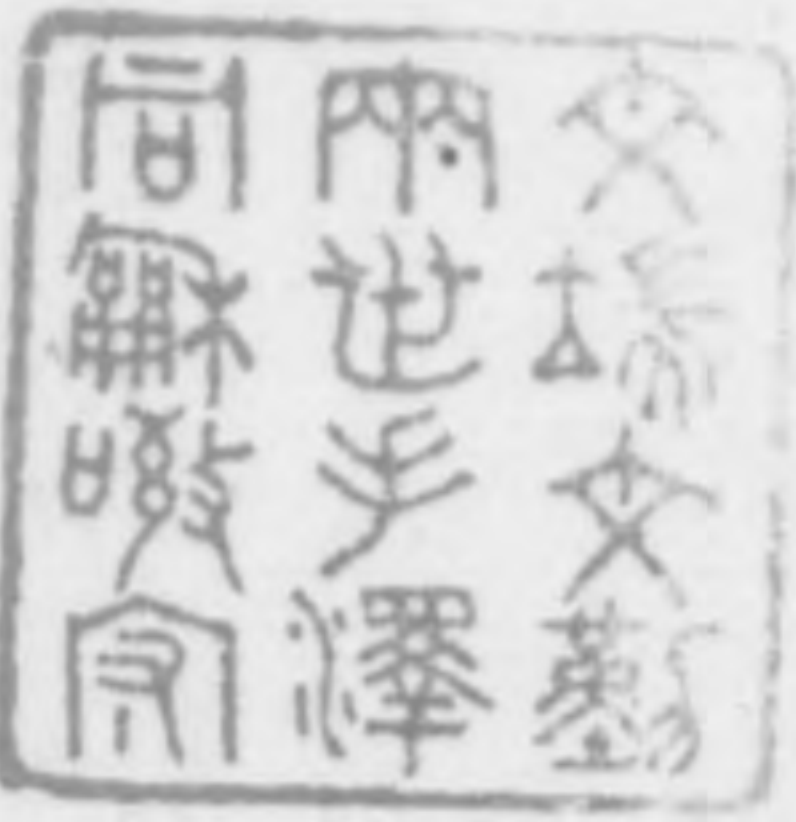 文端文勤
兩世手澤
同龢敬守